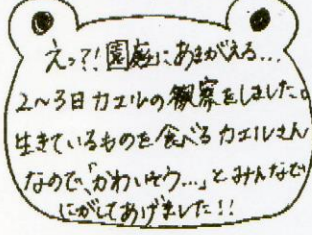 えっ?!園庭にあまがえる...
2〜3日カエルの観察をしました。
生きているものを食べるカエルさん
なので、「かわいそう...」とみんなで
にがしてあげました!!